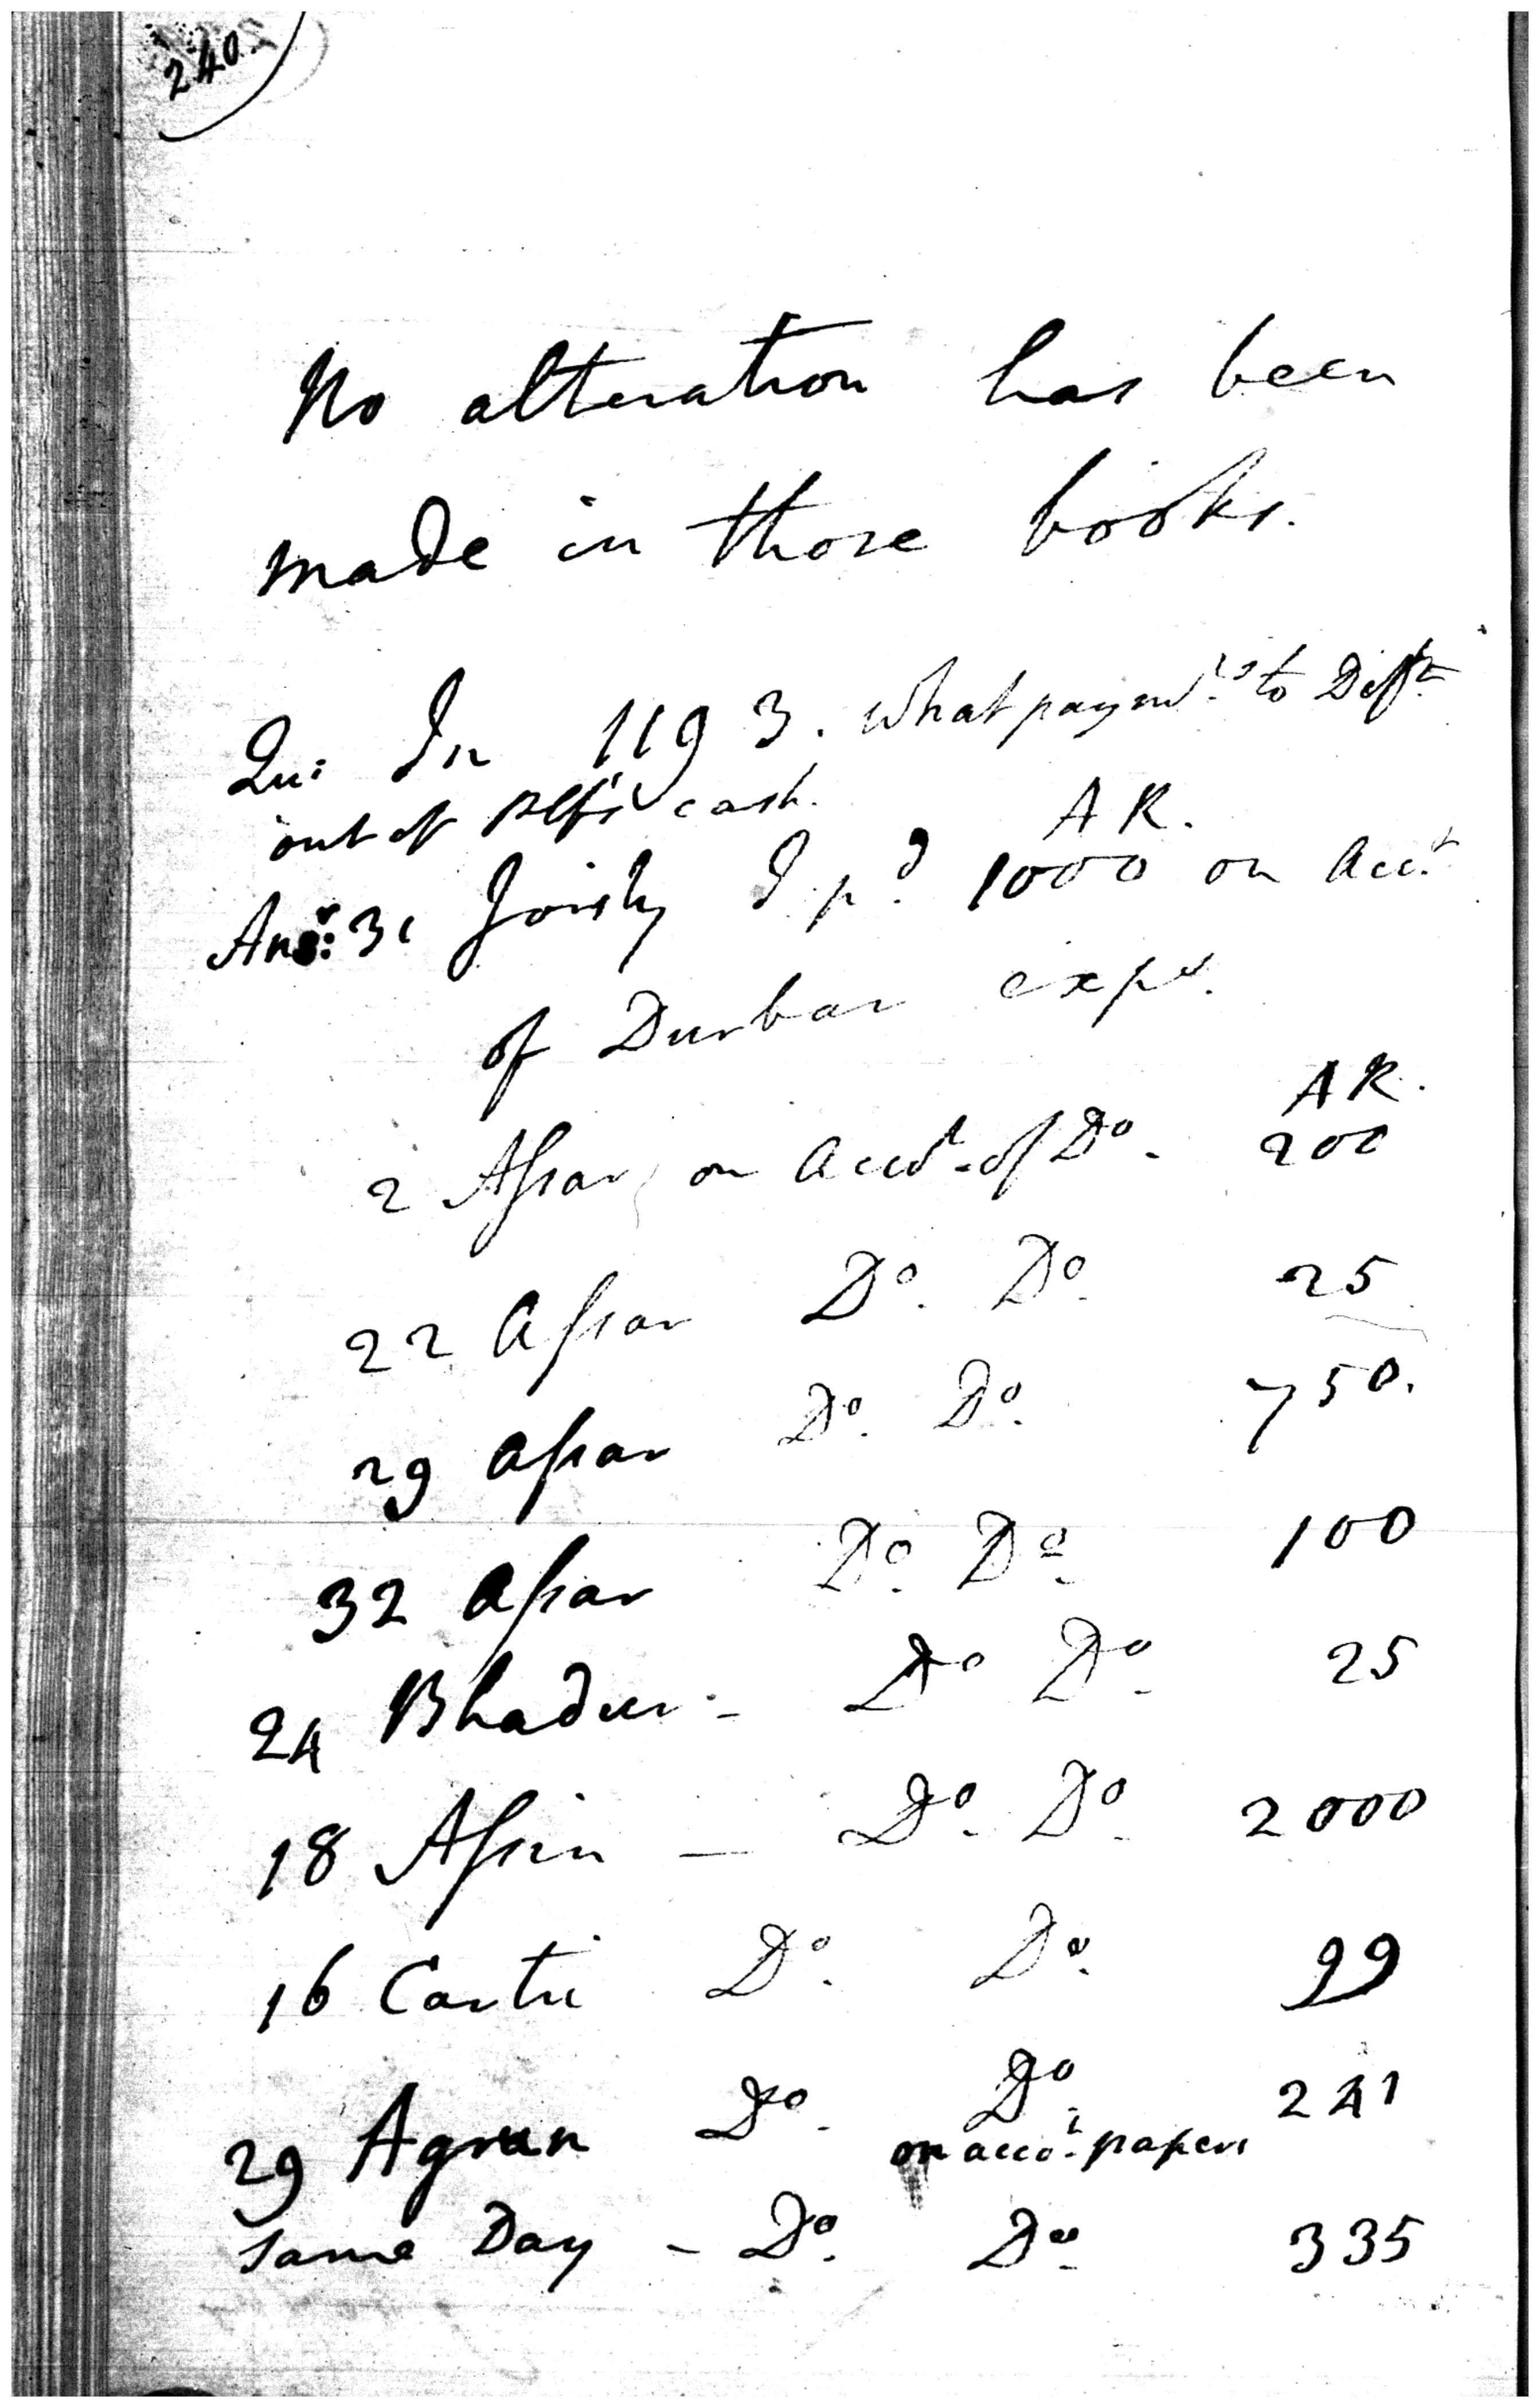 240.
No alteration has been
made in those books.
Qu: In 1193. what paymts. to Deft
out of Plfs cash.
A R.
Ansr: 31 Joisty I pd. 1000 on Acct
of Durbar exps.
A R.
2 Assar on Acct. of Do. 200
22 Assar Do. Do. 25
29 Assar Do. Do. 750.
32 Assar Do. Do. 100
24 Bhadur - Do Do. 25
18 Assin - Do. Do. 2000
16 Cartic Do. Do. 99
29 Agrun Do. Do. 241
on acct. papers
same Day - Do. Do. 335